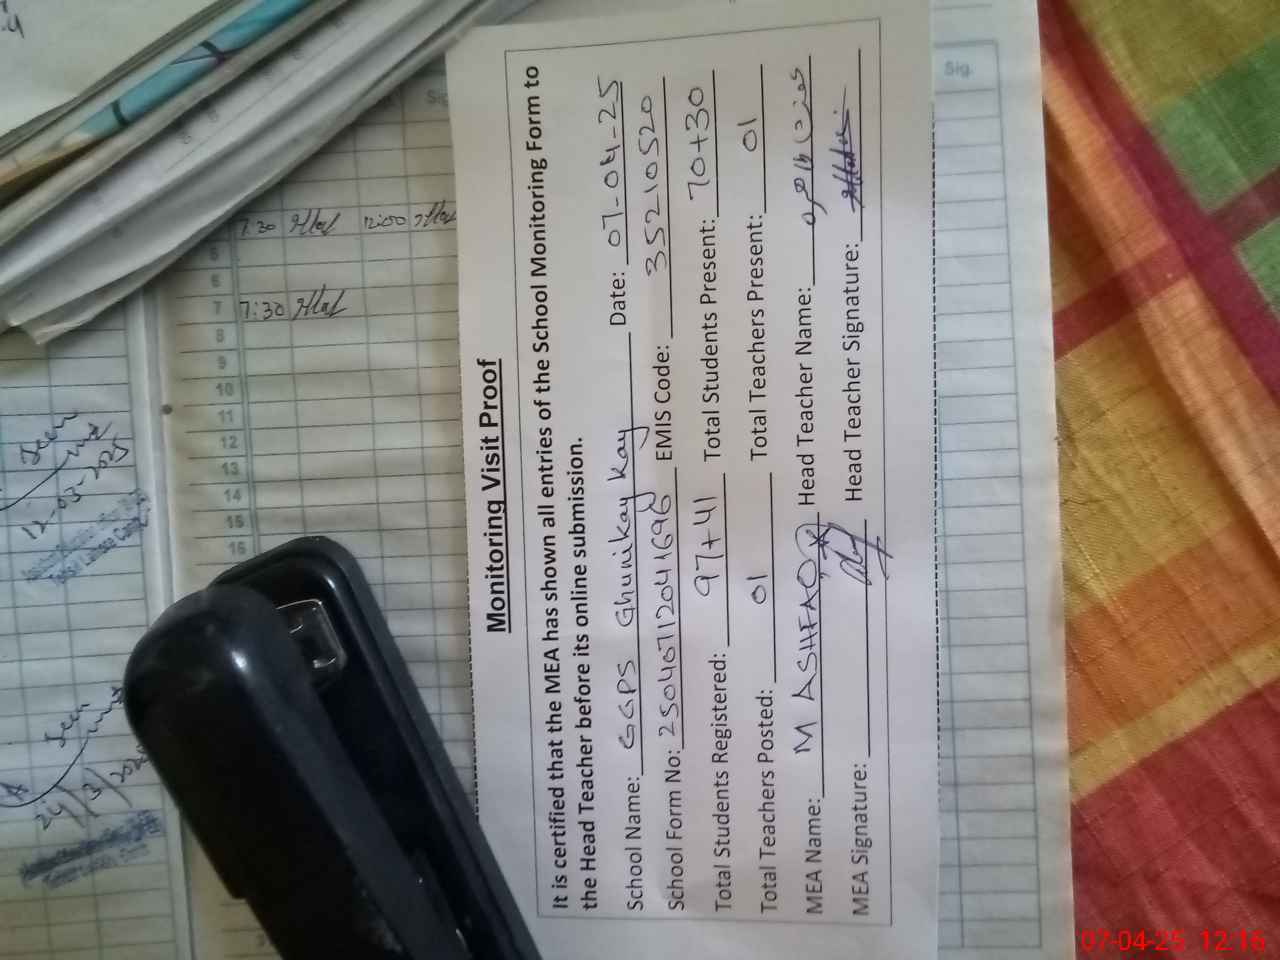 Monitoring Visit Proof
It is certified that the MEA has shown all entries of the School Monitoring Form to
the Head Teacher before its online submission.
School Name: GGPS Ghunikay Kay Date: 07-04-25
School Form No: 25040712041696 EMIS Code: 35210520
Total Students Registered: 97+41 Total Students Present: 70+30
Total Teachers Posted: 01 Total Teachers Present: 01
MEA Name: M ASHFAQ Head Teacher Name:
MEA Signature: Head Teacher Signature:
Sig.
7:30 12:00
5
6
7 7:30
8
9
10
11
12
13
14
15
16
Seen
12-03-2025
Seen
24/3/2025
07-04-25 12:16